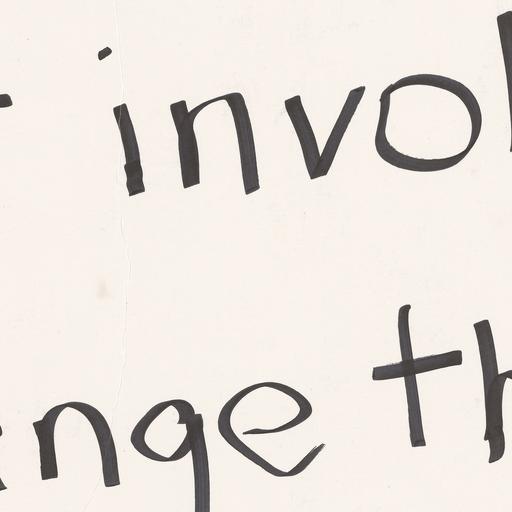 invol
nge th